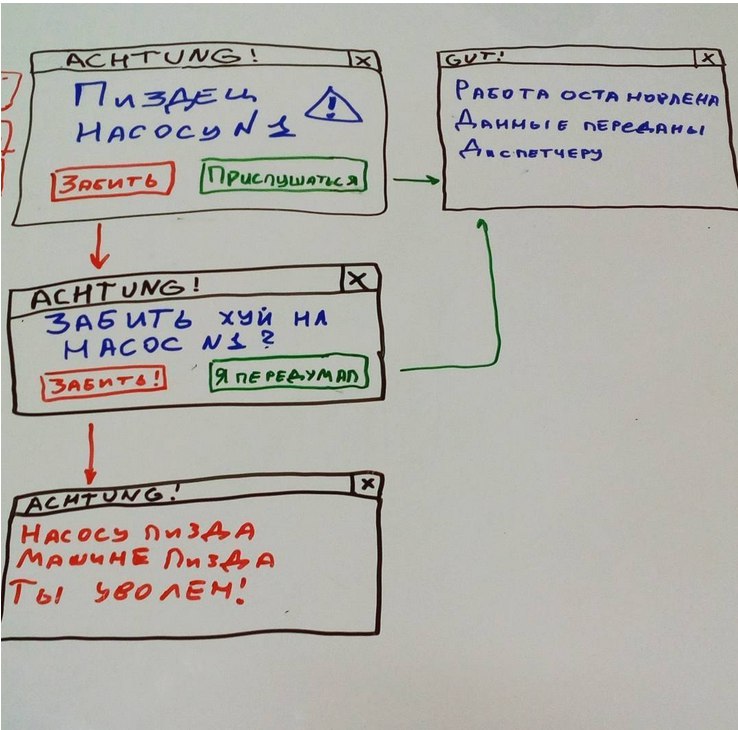 ACHTUNG! X
ПИЗДЕЦ
НАСОСУ N1
!
ЗАБИТЬ ПРИСЛУШАТЬСЯ
GUT! X
РАБОТА ОСТАНОВЛЕНА
ДАННЫЕ ПЕРЕДАНЫ
ДИСПЕТЧЕРУ
ACHTUNG! X
ЗАБИТЬ ХУЙ НА
НАСОС N1?
ЗАБИТЬ! Я ПЕРЕДУМАЛ
ACHTUNG! X
НАСОСУ ПИЗДА
МАШИНЕ ПИЗДА
ТЫ УВОЛЕН!